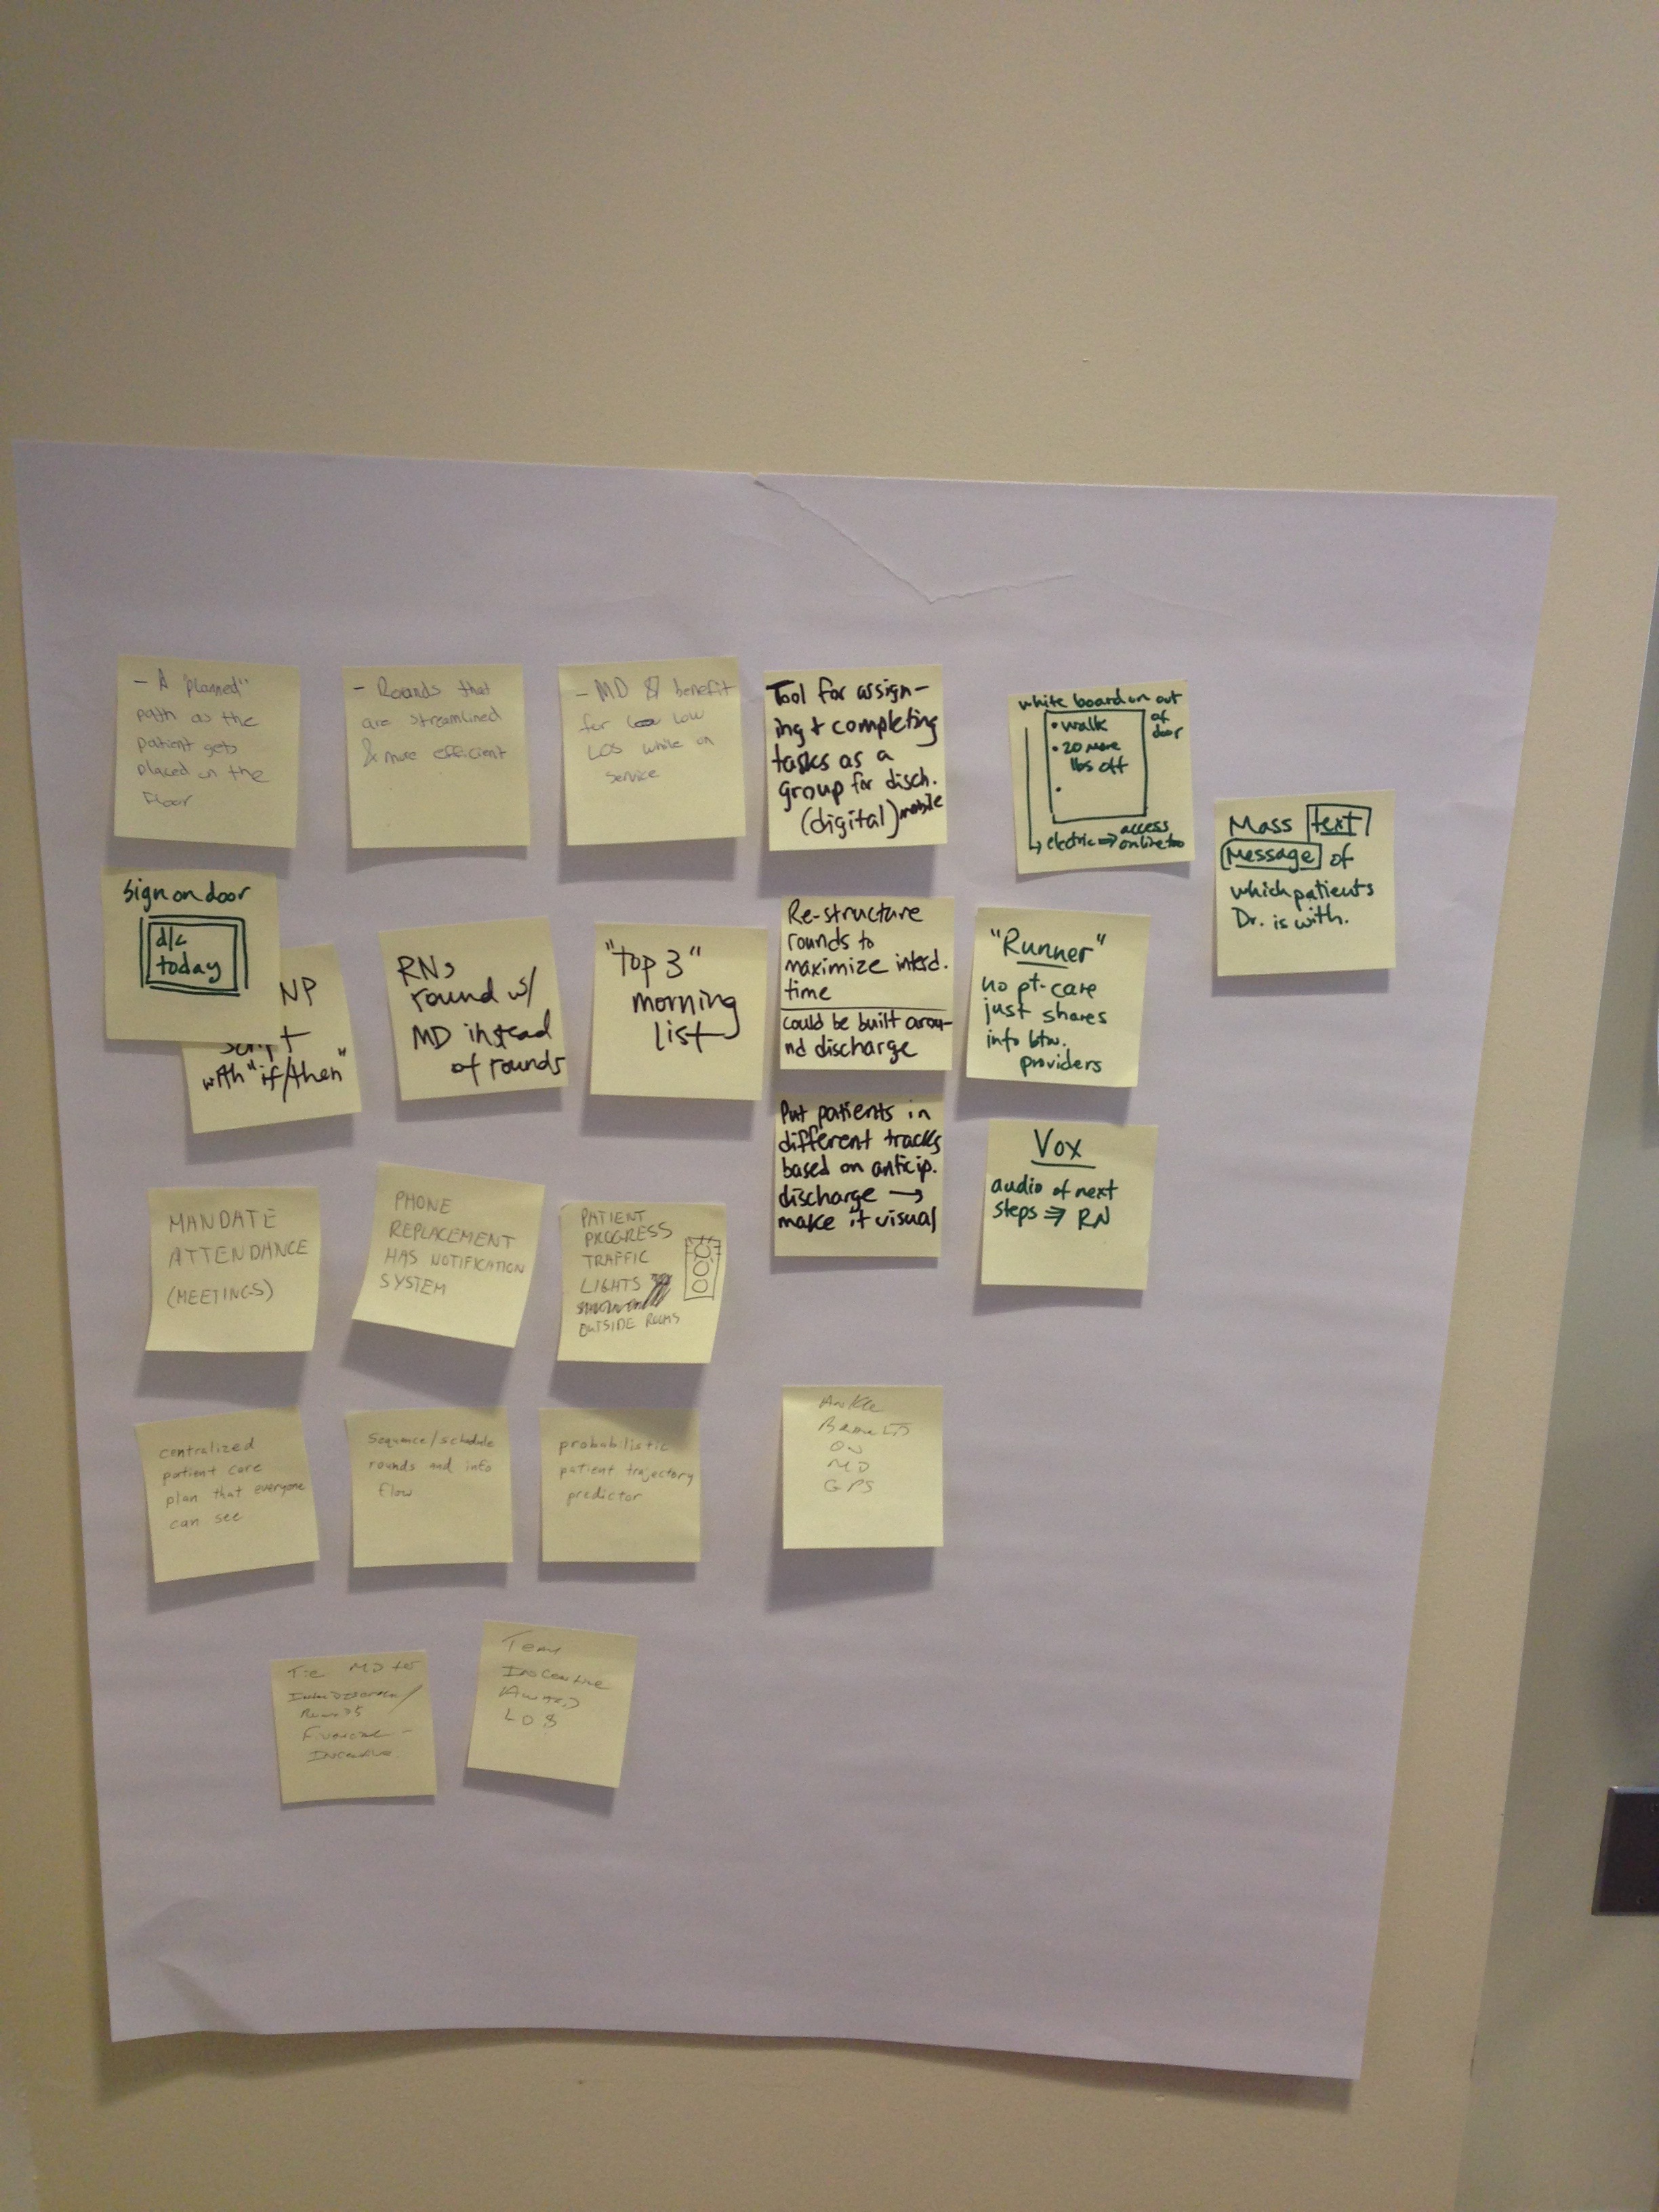 - A "planned"
path as the
patient gets
placed on the
Floor
- Rounds that
are streamlined
& more efficient
- MD $ benefit
for low
LOS while on
service
Tool for assign-
ing + completing
tasks as a
group for disch.
(digital) mobile
white board on out
of
door
• walk
• 20 more
lbs off
•
↳ electric ⇒ access
online too
Mass text
message of
which patients
Dr. is with.
Sign on door
d/c
today
NP
+
with "if/then"
RNs
round w/
MD instead
of rounds
"top 3"
morning
list
Re-structure
rounds to
maximize interd.
time
could be built arou-
nd discharge
"Runner"
no pt-care
just shares
info btw.
providers
Put patients in
different tracks
based on anticip.
discharge →
make it visual
Vox
audio of next
steps ⇒ RN
MANDATE
ATTENDANCE
(MEETINGS)
PHONE
REPLACEMENT
HAS NOTIFICATION
SYSTEM
PATIENT
PROGRESS
TRAFFIC
LIGHTS
OUTSIDE ROOMS
centralized
patient care
plan that everyone
can see
Sequence/schedule
rounds and info
flow
probabilistic
patient trajectory
predictor
Ankle
Bracelets
ON
MD
GPS
Tie MD to
Rounds
Financial -
Incentive
Team
Incentive
Award